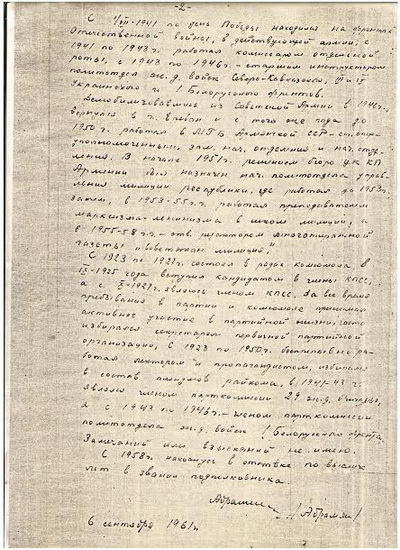 -2-
С 1/VII-1941 по день Победы находился на фронтах
Отечественной войны, в действующей армии; с
1941 по 1943г. работал комиссаром отдельной
роты, с 1943 по 1946г. - старшим инструктором
политотдела ж.д. войск Северо-Кавказского, III и IV
Украинского и I Белорусского фронтов.
Демобилизовавшись из Советской Армии в 1946г.,
вернулся в г. Ереван и с того же года до
1950г. работал в МГБ Армянской ССР - ст. опер-
уполномоченным, зам. нач. отделения и нач. отде-
ления. В начале 1951г. решением бюро ЦК КП
Армении был назначен нач. политотдела управ-
ления милиции республики, где работал до 1953г.
Затем, в 1953-55гг. работал преподавателем
марксизма-ленинизма в школе милиции,
в 1955-58гг. - отв. редактором многотиражной
газеты "Советская милиция."
С 1923 по 1927г. состоял в рядах комсомола. В
IX-1925 года вступил кандидатом в члены КПСС,
а с X-1927г. являюсь членом КПСС. За все время
пребывания в партии и комсомоле принимал
активное участие в партийной жизни, часто
избирался секретарем первичной партийной
организации; с 1923 по 1950г. беспрерывно ра-
ботал лектором и пропагандистом, избирался
в состав пленумов райкома, в 1941-43 г.
являлся членом парткомиссии 29 ж.д. бригады,
а с 1943 по 1946г. - членом парткомиссии
политотдела ж.д. войск I Белорусского фронта.
Замечаний или взысканий не имею.
С 1958г. нахожусь в отставке по выслуге
лет в звании подполковника.
/Абрамян/
6 сентября 1961г.